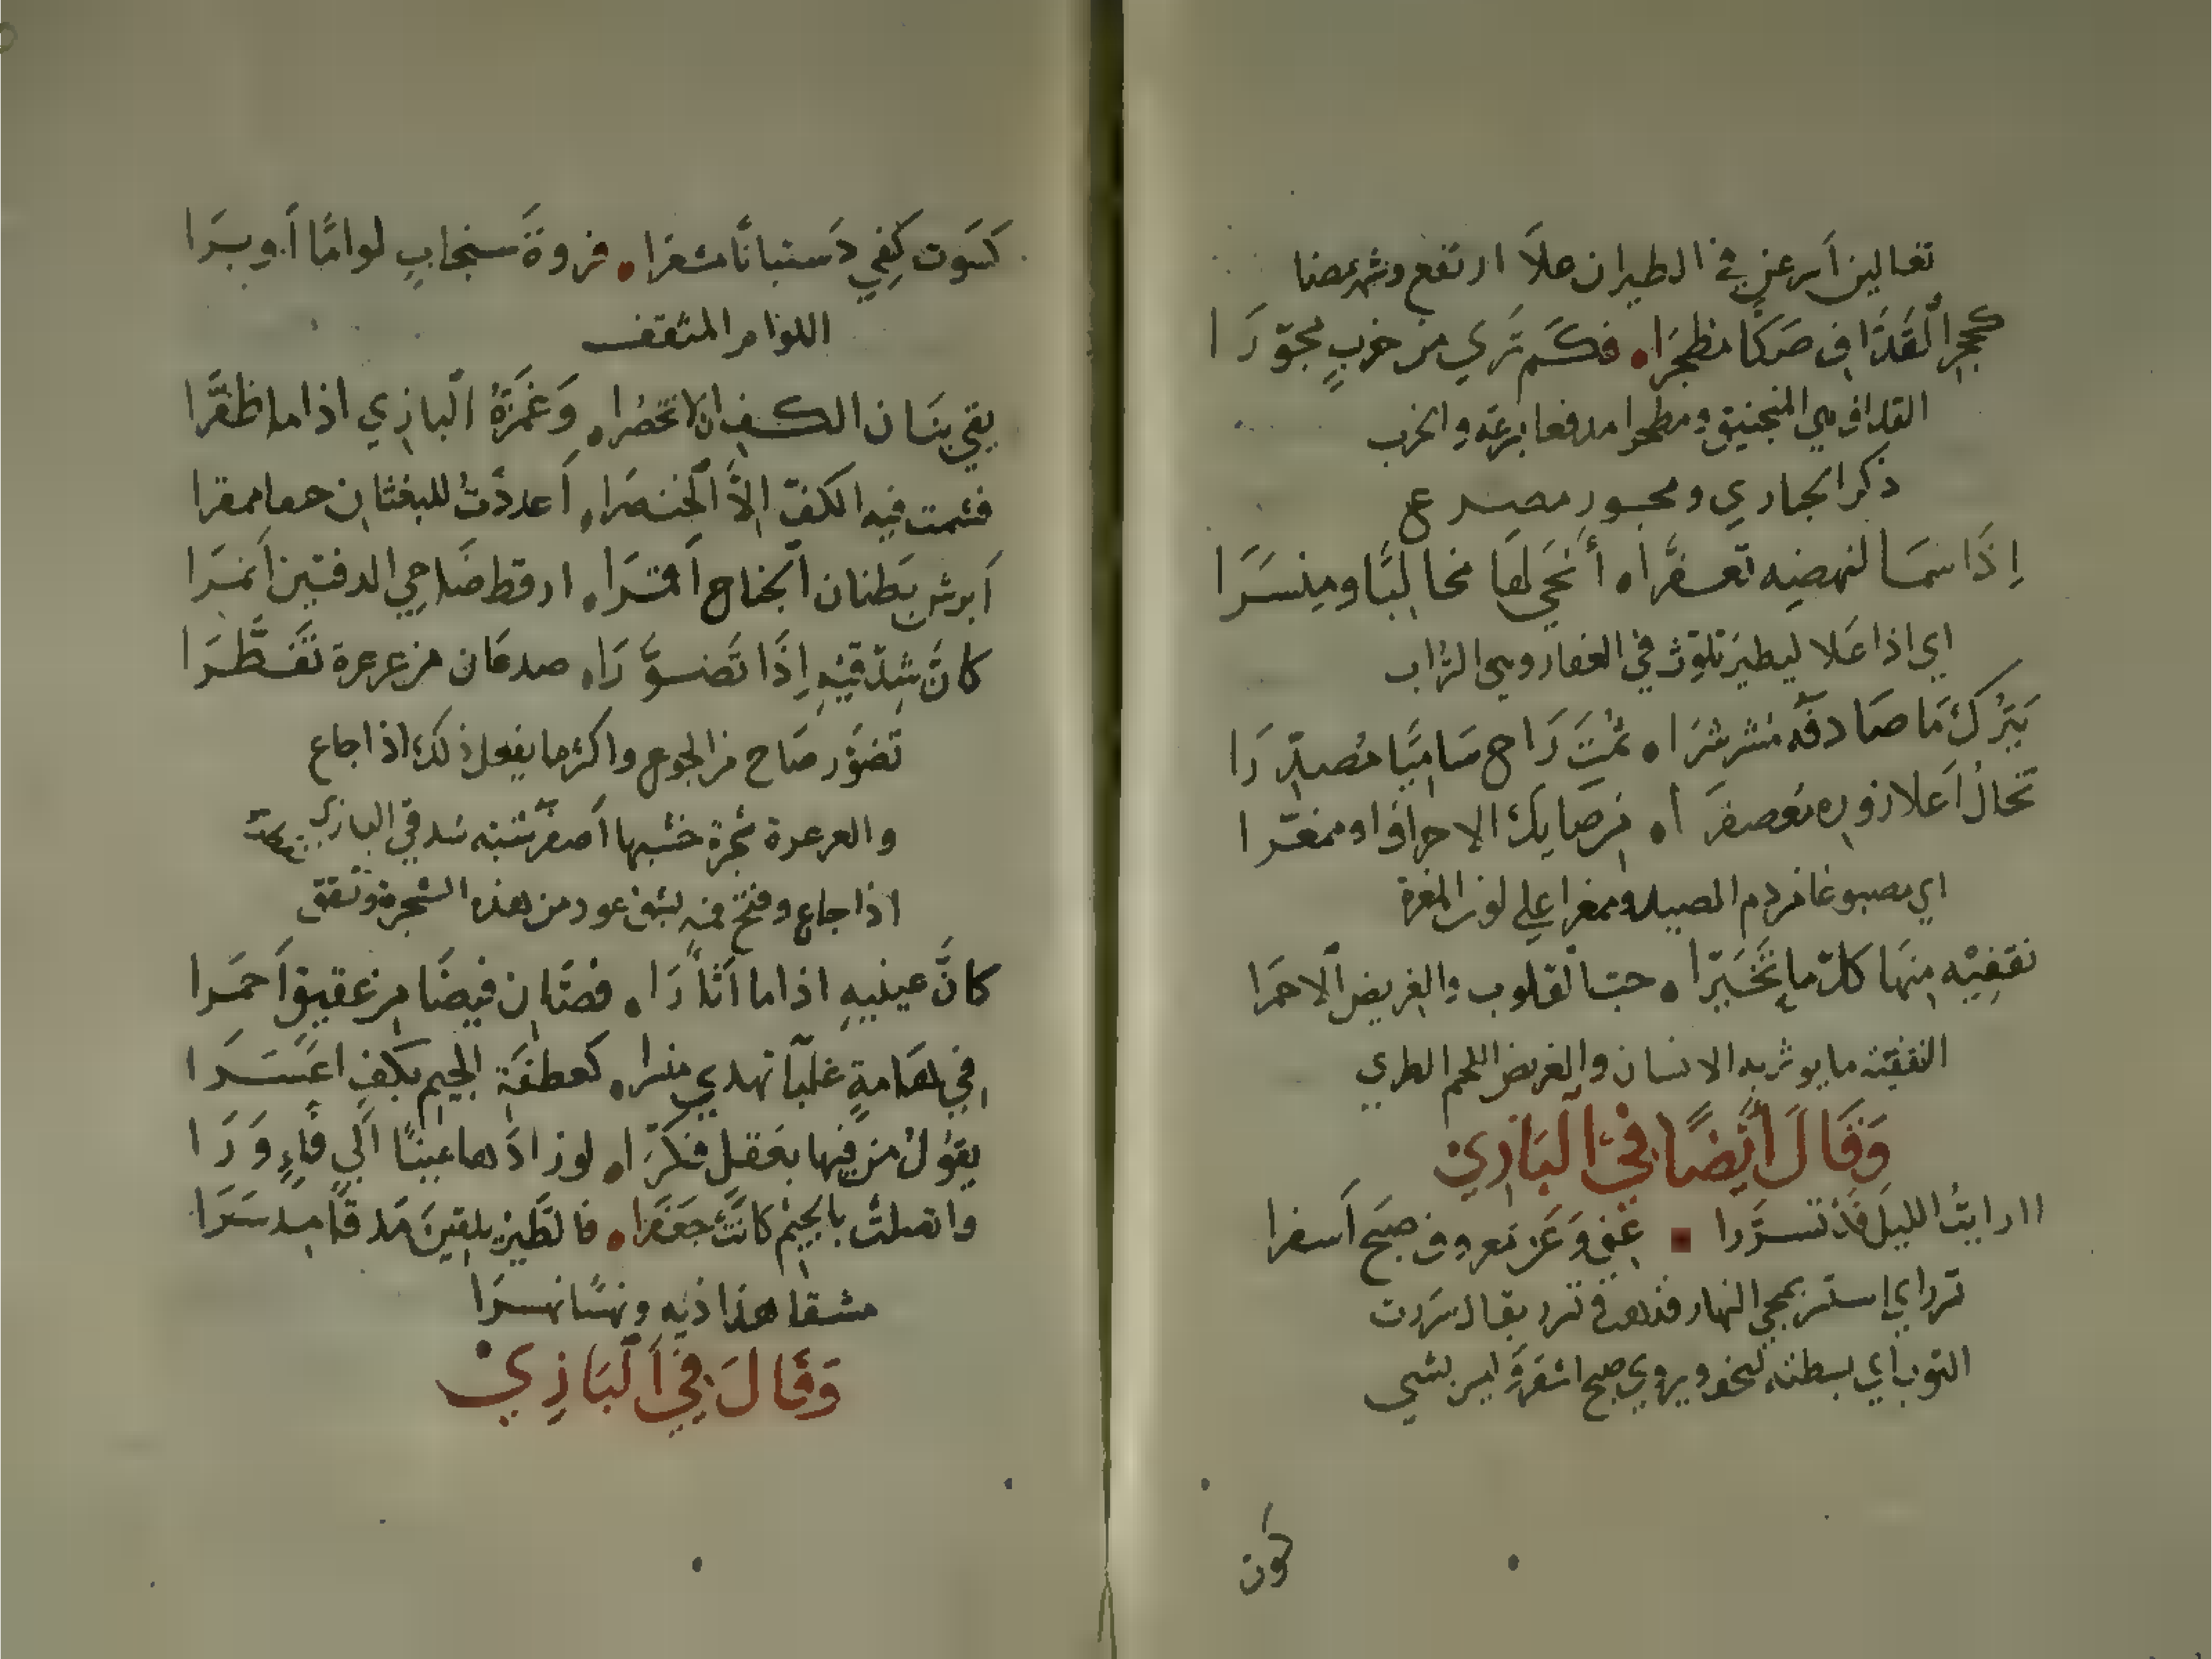 تغالين أسرعن في الطيران علاً ارتفع وشهرضنا
كحجر القذاف صكا مطحرا فكم تري من خرب مجورا
القذاف هي المنجنيق ومطحرا مدفعا بزعه والخرب
ذكر الحباري ومجور مصرع
إذا سما لنهضه تعفرا أنحي لها مخالبا ومنسرا
اي اذا علا ليطير تلوث في العفار وهي التراب
يترك ما صادفه مشرشرا ثمت راح ساميا مصدرا
تخال أعلا زوره معصفرا من صايك الاجواف او ممغرا
اي مصبوغا من دم الصيد وممغرا علي لون المغرة
نقفيه منها كل ما تخيرا حب القلوب والغريض الاحمرا
النقفيته ما يوثر به الانسان والغريض اللحم الطري
وقال أيضا في البازي
لا رايت الليل قد تسررا عني وعن معروف صبح أسفرا
تررا اي استتر بمجي النهار فذهب في ترر يقال سررت
الثوب اي بسطته ليخف ويروي صبح اشقر وليس بشي
كون
كسوت كفي دستبانا مشعرا فروة سنجاب لواما أوبرا
اللوام المثقف
يقي بنان الكف الا تخصرا وغمزة البازي اذا ما ظفرا
فشمت فيه الكف الا الخنصرا أعددت للبغثان حما ممقرا
أبرش بطنان الجناح أقمرا ارقط ضاحي الدفتين أنمرا
كان شدقيه إذا تضورا صدعان من عرعرة تفطرا
تضور صاح من الجوع واكثر ما يفعل ذلك اذا جاع
والعرعرة شجرة خشبها أصفر شبه شدقي البازي
اذا جاع وفتح فمه بشق عود من هذه الشجرة وتشقق
كان عينيه اذا ما أثأرا فصان قيضا من عقيق أحمرا
في هامة غلبا تهدي منسرا كعطفة الجيم بكف اعسرا
يقول من فيها بعقل فكرا لو زادها عينا الي فاء ورا
واتصلت بالجيم كانت جعفرا فالطير يلقين مدقا مدسرا
مشقا هذاذيه ونهسا نهسرا
وقال في البازي